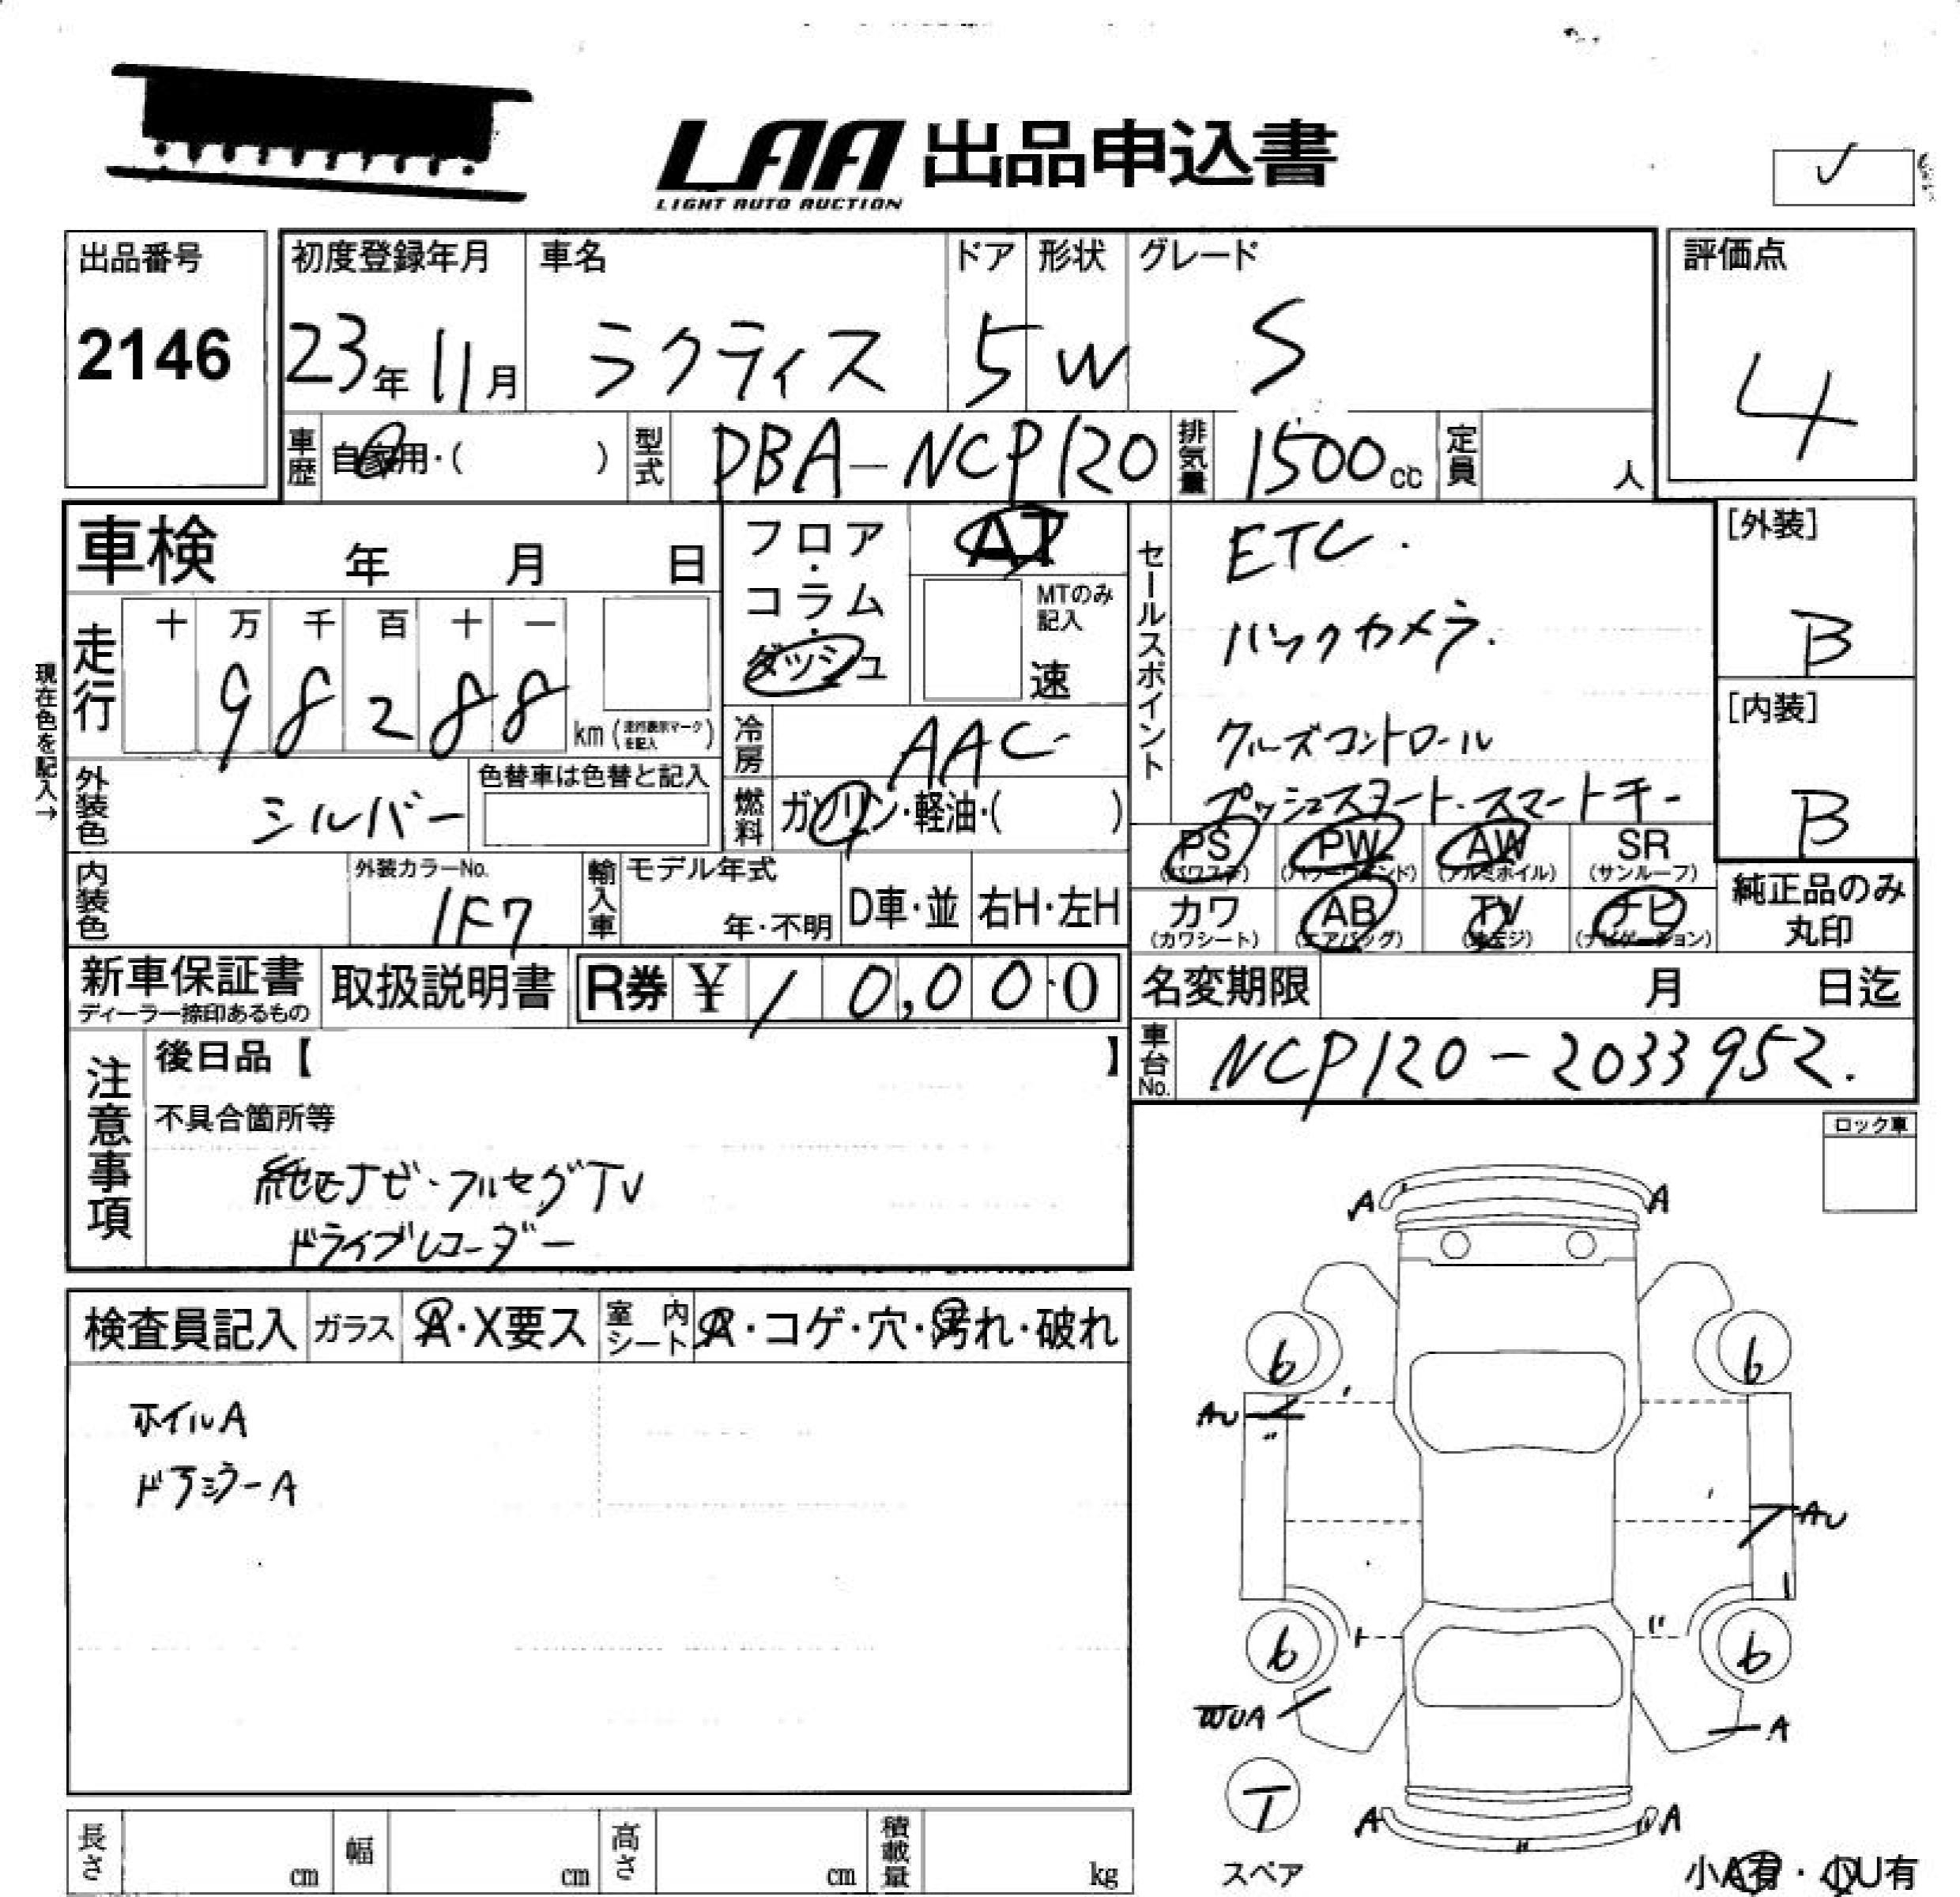 LAA 出品申込書
LIGHT AUTO AUCTION
出品番号
2146
初度登録年月
23年 11月
車名
ラクティス
ドア
5
形状
W
グレード
S
評価点
4
車歴 自家用・( )
型式 DBA-NCP120
排気量 1500cc
定員 人
車検 年 月 日
フロア・コラム・ダッシュ
AT
MTのみ記入
速
セールスポイント
ETC.
バックカメラ.
クルーズコントロール
プッシュスタート.スマートキー
[外装]
B
[内装]
B
現在色を記入→
走行
十 万 千 百 十 一
98288
km (走行表示マークを記入)
冷房 AAC
外装色 シルバー
色替車は色替と記入
燃料 ガソリン・軽油・( )
PS (パワステ)
PW (パワーウインド)
AW (アルミホイル)
SR (サンルーフ)
カワ (カワシート)
AB (エアバッグ)
TV
ナビ (ナビゲーション)
純正品のみ丸印
内装色
外装カラーNo.
1F7
輸入車
モデル年式
年・不明
D車・並
右H・左H
新車保証書
ディーラー捺印あるもの
取扱説明書
R券 ¥ 10,000
名変期限 月 日迄
車台No. NCP120-2033952.
注意事項
後日品【 】
不具合箇所等
純正ナビ・フルセグTV
ドライブレコーダー
ロック車
検査員記入
ガラス A・X要ス
室内シート A・コゲ・穴・汚れ・破れ
ホイルA
ドアミラーA
A A
6 6
AU
AU
6 6
WUA
A
T
スペア
A A
小A有・小U有
長さ cm
幅 cm
高さ cm
積載量 kg